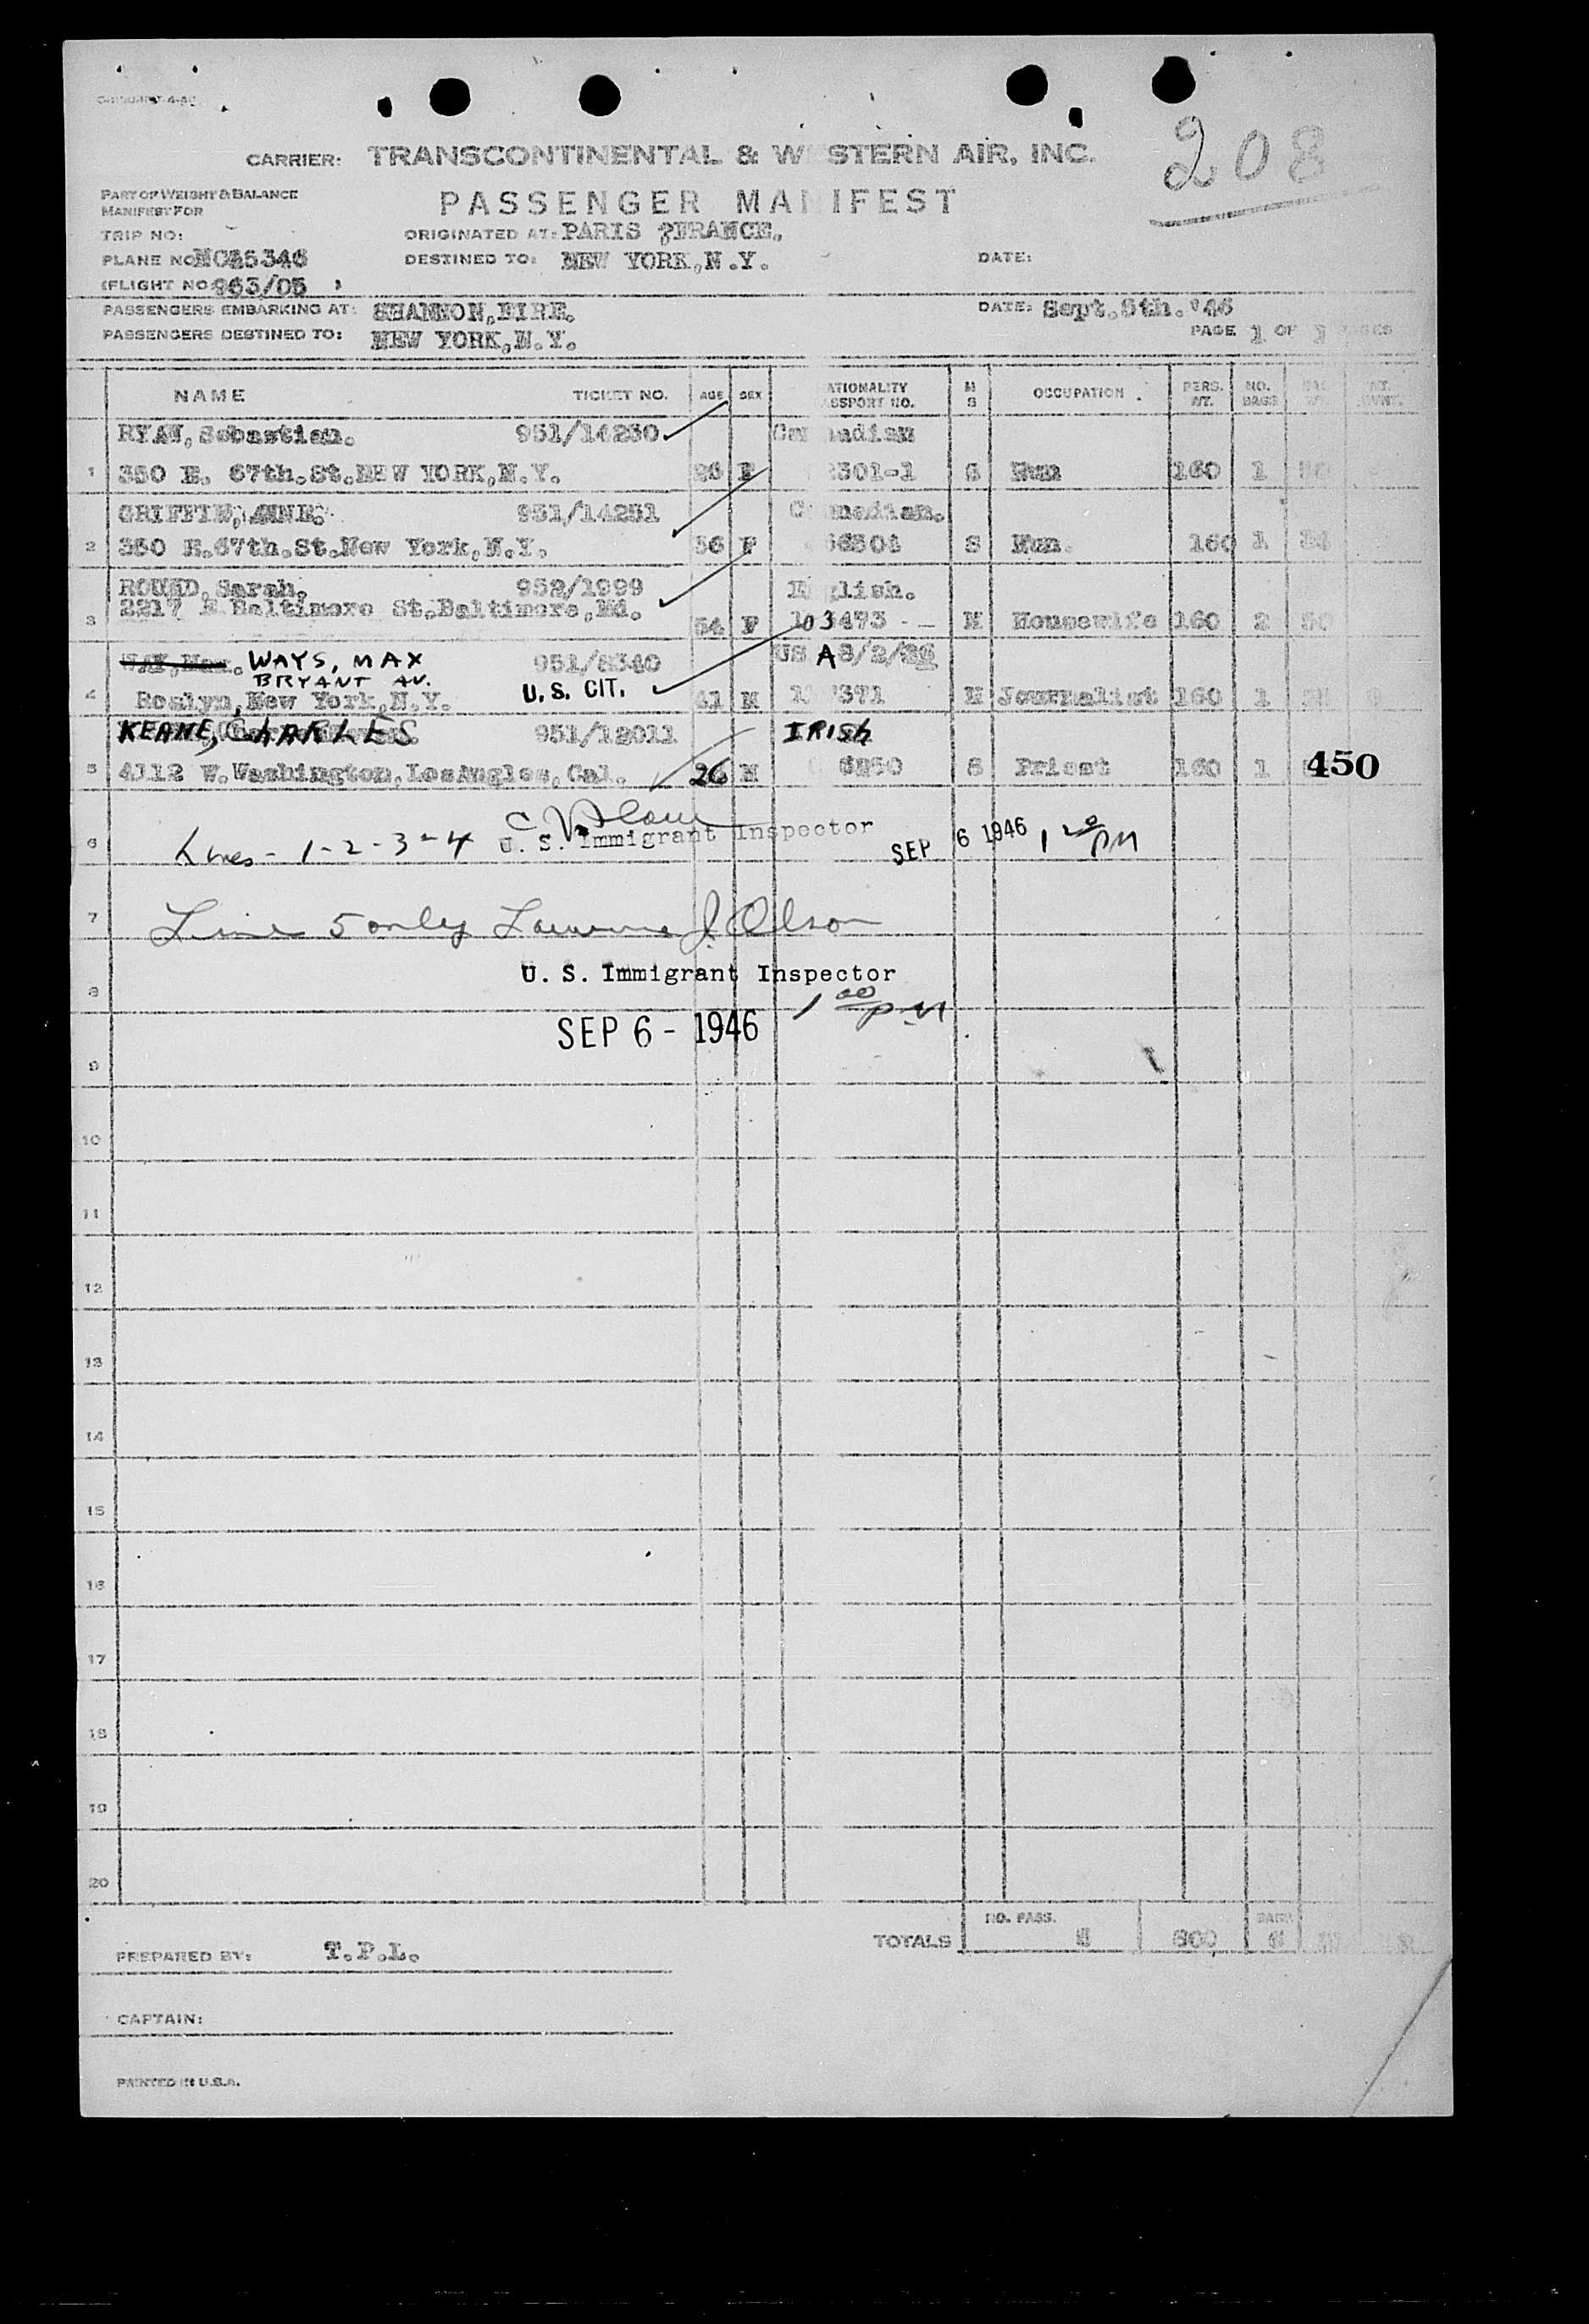 208
CARRIER: TRANSCONTINENTAL & W STERN AIR, INC.
PART OF WEIGHT & BALANCE
MANIFEST FOR
PASSENGER MANIFEST
TRIP NO:
ORIGINATED AT: PARIS FRANCE.
PLANE NO NC45346
DESTINED TO: NEW YORK, N.Y.
DATE:
(FLIGHT NO: 963/05 )
PASSENGERS EMBARKING AT: SHANNON, EIRE.
DATE: Sept. 5th. '46
PASSENGERS DESTINED TO: NEW YORK, N.Y.
PAGE 1 OF 1
NAME TICKET NO. AGE SEX ATIONALITY SSPORT NO. M S OCCUPATION PERS. WT. NO. BAGS
RYAN, Sebastian. 951/14250 Ca nadian
1 350 E. 67th. St. NEW YORK, N.Y. 26 F 2301-1 S Nun 160 1
GRIFFIN, ANNE. 951/14251 C nadian.
2 350 E. 67th. St. New York, N.Y. 56 F S Nun. 160 1
ROUND, Sarah. 952/1999 E glish.
2217 E Baltimore St. Baltimore, Md.
3 54 F 103473 M Housewife 160 2 50
WAY, Max. WAYS, MAX 951/8340 US A 8/2/36
BRYANT AV.
4 Roslyn, New York, N.Y. U.S. CIT. 41 M 371 M Journalist 160 1
KEANE, CHARLES 951/12011 IRISH
5 4112 W. Washington, LosAngles, Cal. 26 M 6250 S Priest 160 1 450
6 Lines - 1-2-3-4 U. S. Immigrant Inspector SEP 6 1946 1 20 PM
7 Line 5 only Lawrence J. Olson
U. S. Immigrant Inspector
8 1 00 PM
SEP 6 - 1946
9
10
11
12
13
14
15
16
17
18
19
20
NO. PASS. BAGS
TOTALS 5 800 6
PREPARED BY: T.P.L.
CAPTAIN:
PRINTED IN U.S.A.